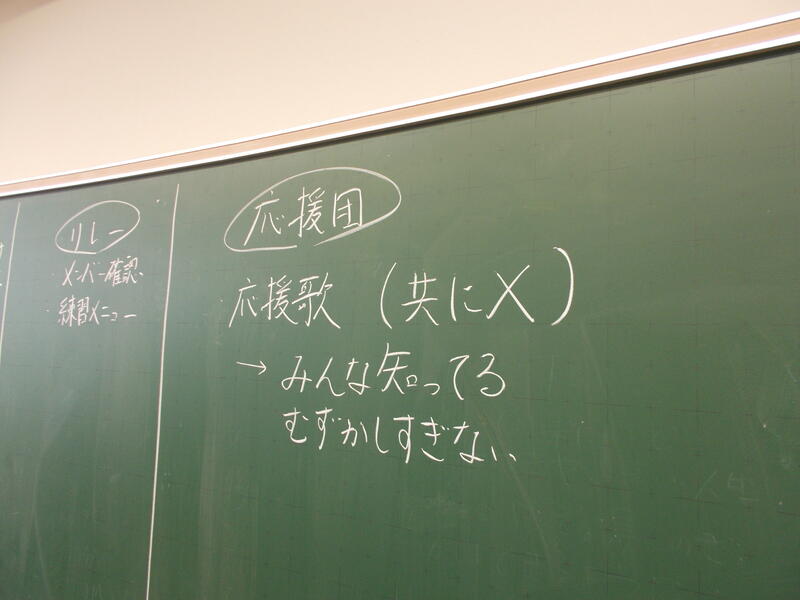 リレー
メンバー確認
練習メニュー
応援団
応援歌（共にX）
→みんな知ってる
むずかしすぎない